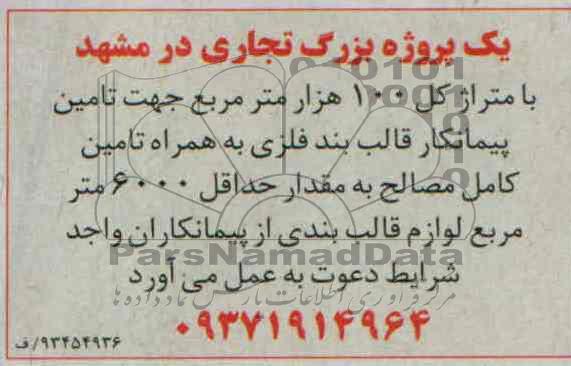 یک پروژه بزرگ تجاری در مشهد
با متراژ کل ۱۰۰ هزار متر مربع جهت تامین
پیمانکار قالب بند فلزی به همراه تامین
کامل مصالح به مقدار حداقل ۶۰۰۰ متر
مربع لوازم قالب بندی از پیمانکاران واجد
ParsNamadData
شرایط دعوت به عمل می آورد
مرکز فرآوری اطلاعات پارس نماد داده ها
۰۹۳۷۱۹۱۴۹۶۴
۹۳۴۵۴۹۳۶/ف